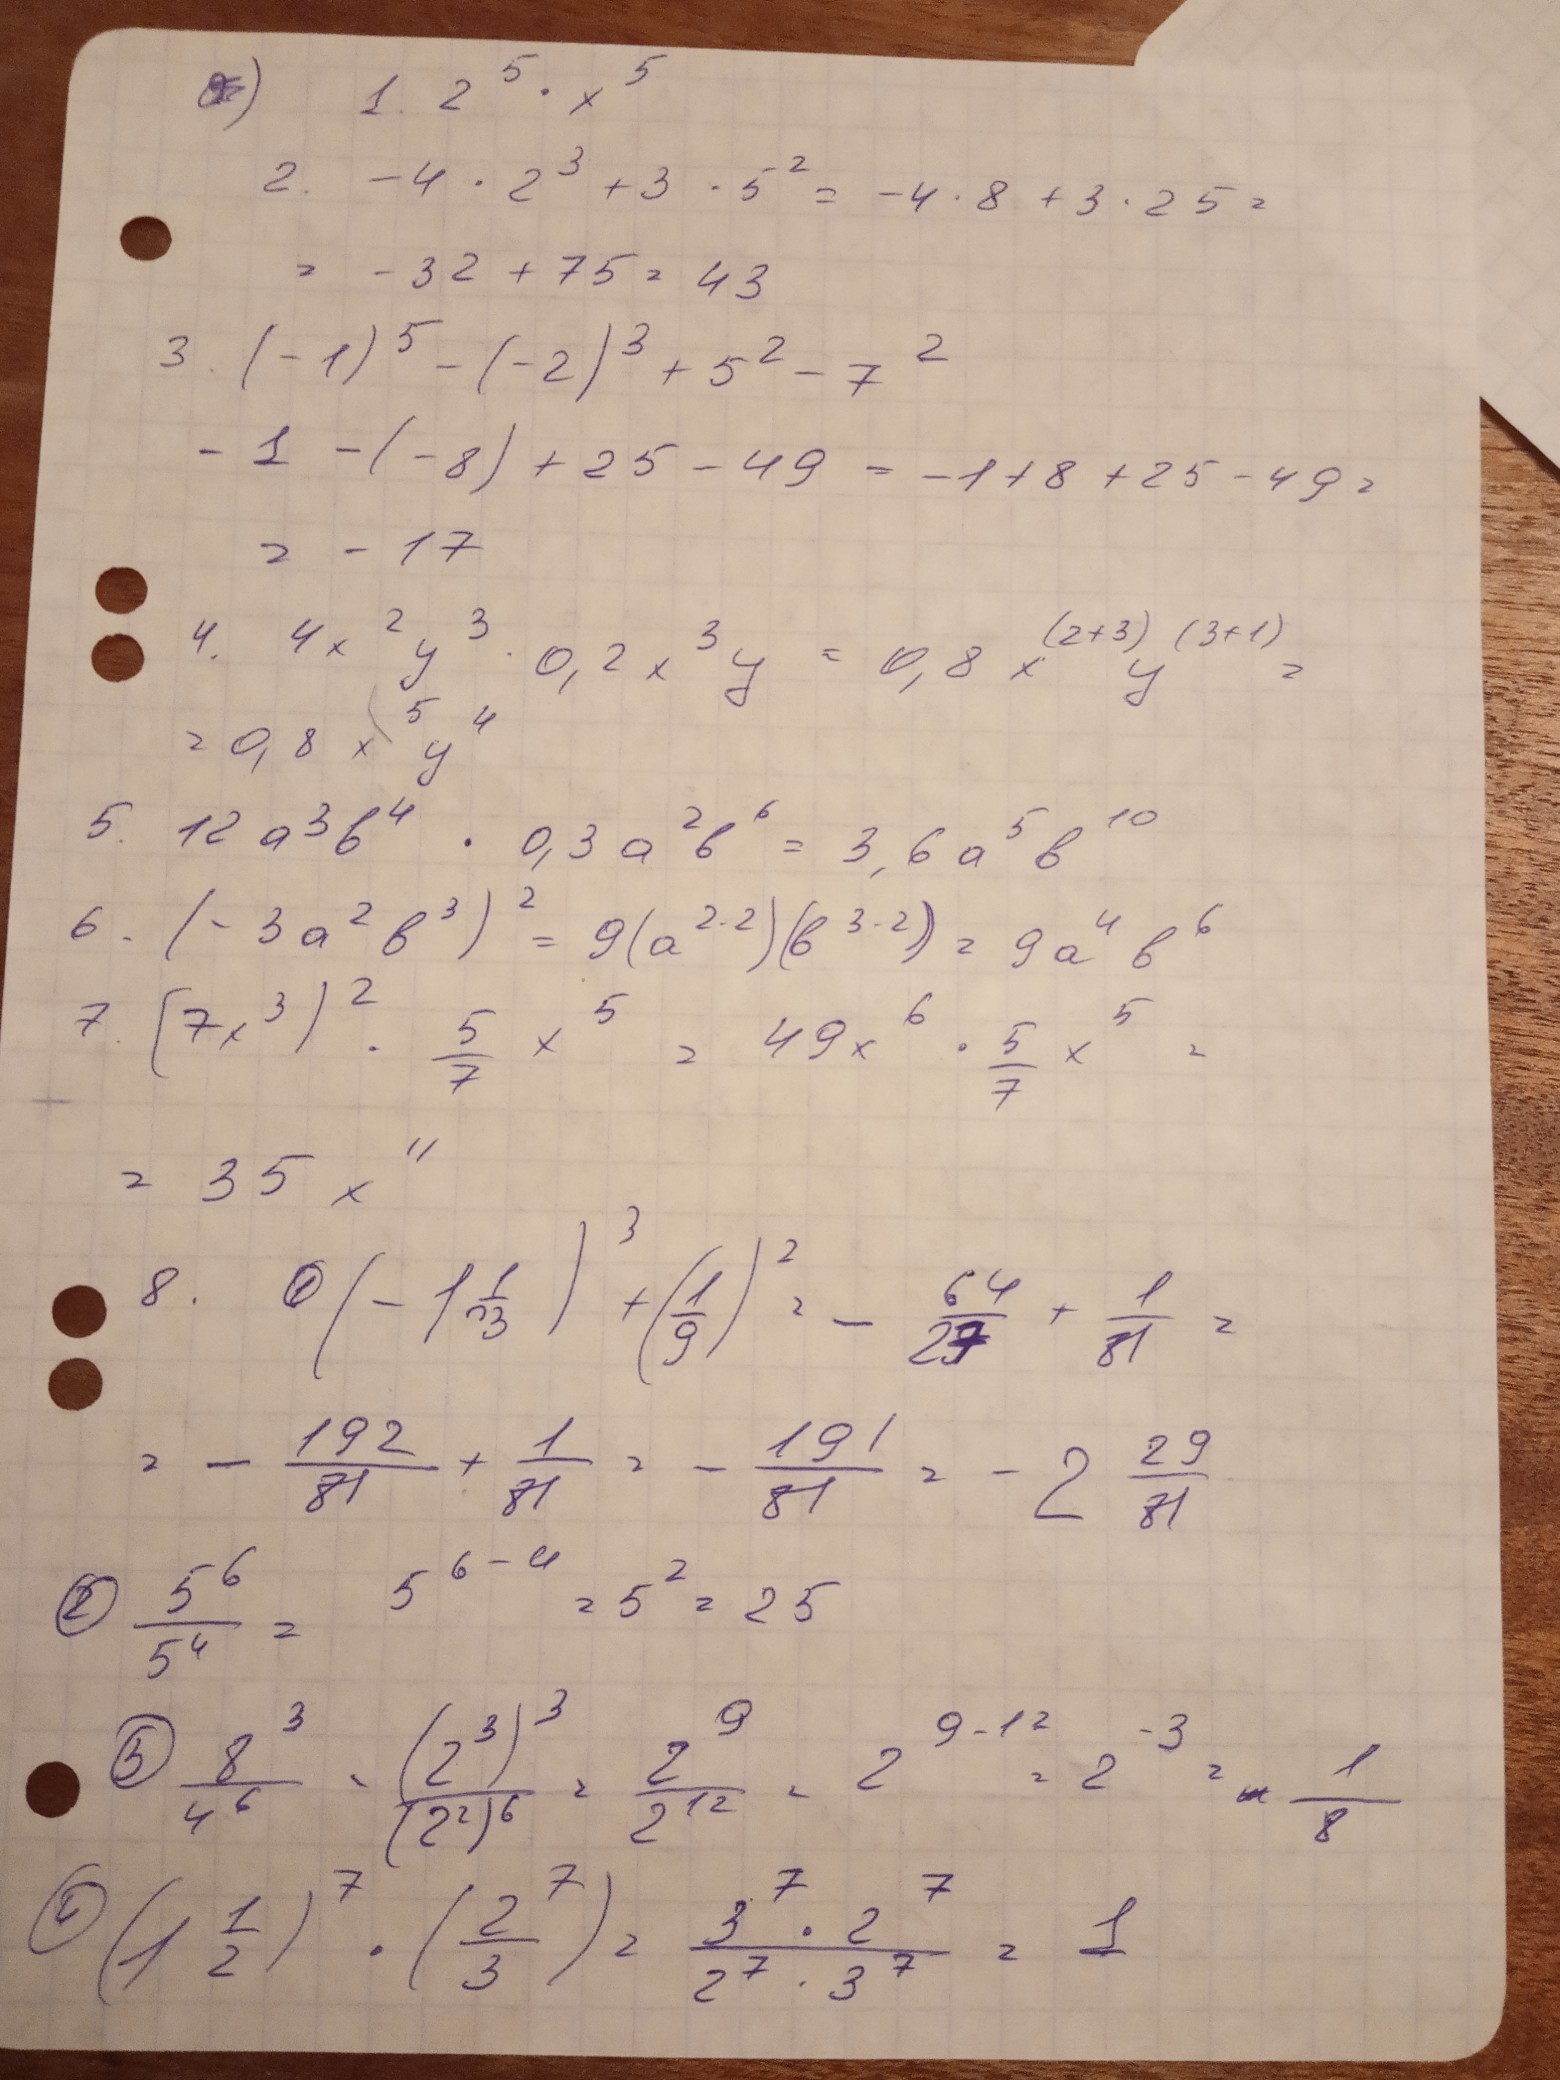 1. 2⁵ · x⁵
2. -4 · 2³ + 3 · 5² = -4 · 8 + 3 · 25 =
= -32 + 75 = 43
3. (-1)⁵ - (-2)³ + 5² - 7²
-1 - (-8) + 25 - 49 = -1 + 8 + 25 - 49 =
= -17
4. 4x²y³ · 0,2x³y = 0,8x⁽²⁺³⁾y⁽³⁺¹⁾ =
= 0,8x⁵y⁴
5. 12a³b⁴ · 0,3a²b⁶ = 3,6a⁵b¹⁰
6. (-3a²b³)² = 9(a^{2·2})(b^{3·2}) = 9a⁴b⁶
7. (7x³)² · 5/7 x⁵ = 49x⁶ · 5/7 x⁵ =
= 35x¹¹
8. ① (-1 1/3)³ + (1/9)² = - 64/27 + 1/81 =
= - 192/81 + 1/81 = - 191/81 = -2 29/81
② 5⁶/5⁴ = 5⁶⁻⁴ = 5² = 25
③ 8³/4⁶ = (2³)³/(2²)⁶ = 2⁹/2¹² = 2⁹⁻¹² = 2⁻³ = 1/8
(1 1/2)⁷ · (2⁷/3) = 3⁷ · 2⁷/2⁷ · 3⁷ = 1